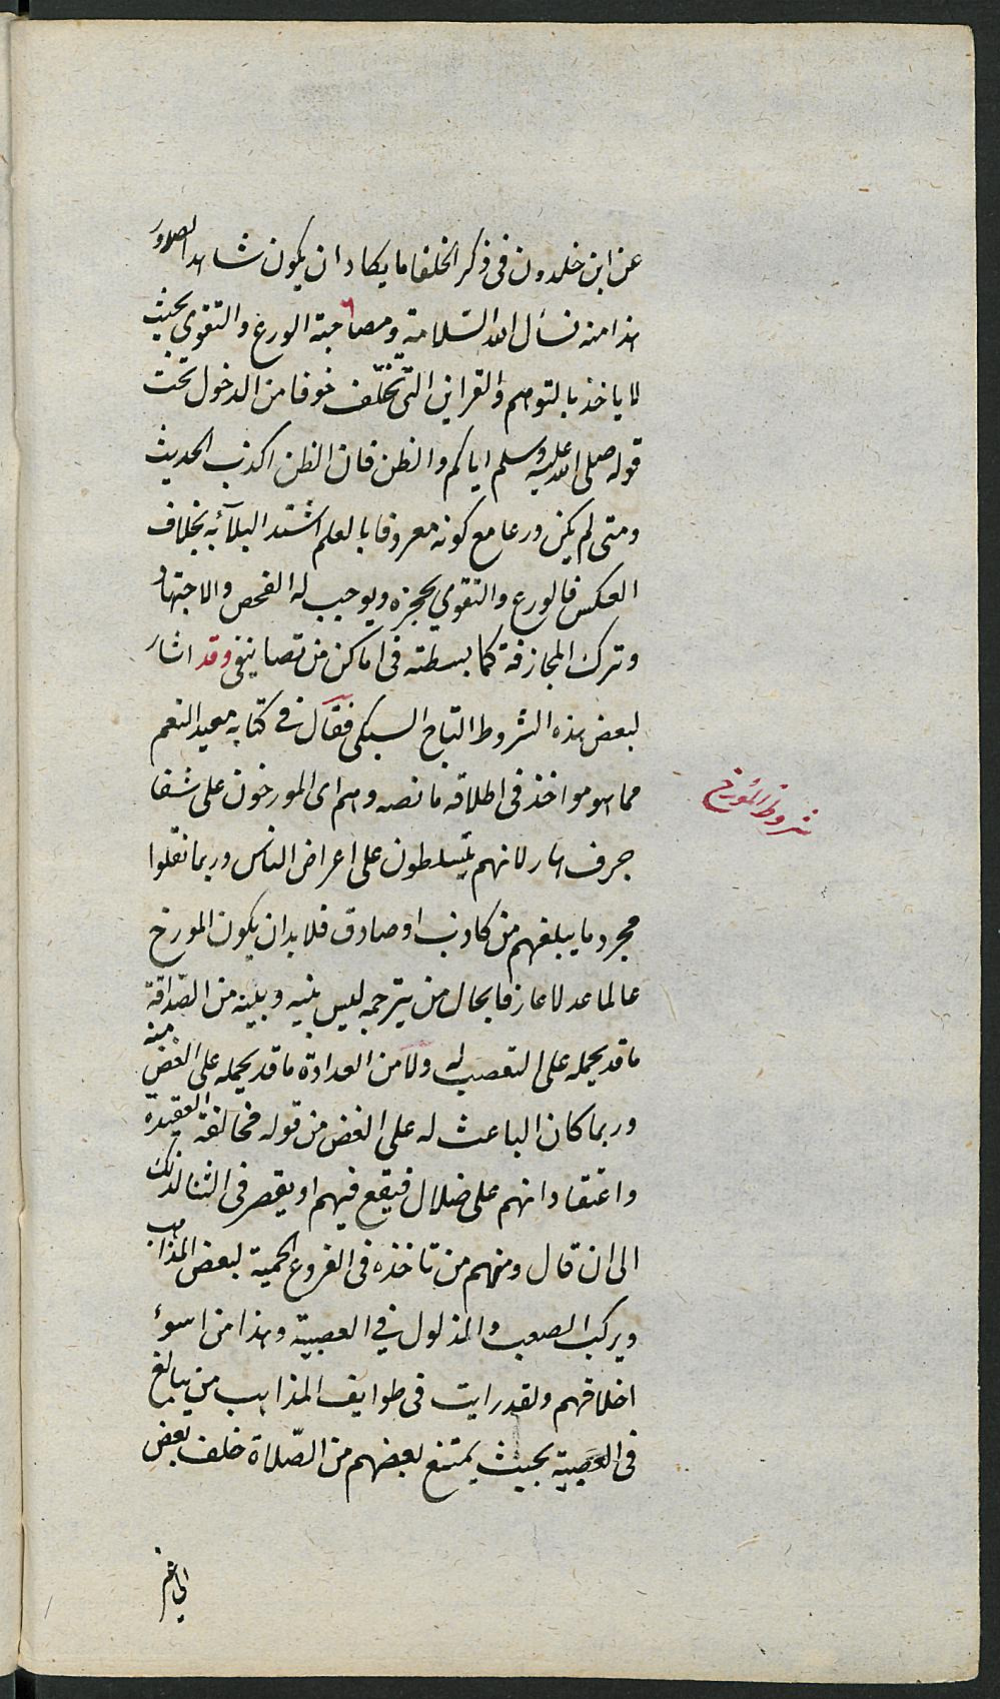 عن ابن خلدون فى ذكر الخلفا ما يكاد ان يكون شاهد الصدور
هذا منه نسأل الله السّلامة ومصاحبة الورع والتقوى بحيث
لا ياخذ بالتوهم والقراين التى تخلّف خوفا من الدخول تحت
قوله صلى الله عليه وسلم اياكم والظن فان الظن اكذب الحديث
ومتى لم يكن ورعا مع كونه معروفا بالعلم اشتد البلآء به بخلاف
العكس فالورع والتقوى يحجزه ويوجب له الفحص والاجتهاد
وترك المجازفة كما بسطته فى اماكن من تصانيفى وقد اشار
لبعض هذه الشروط التاج السبكى فقال فى كتابه معيد النعم
مما هو مواخذ فى اطلاقه ما نصه وهم اى المورخون على شفا
جرف هار لانهم يتسلطون على اعراض الناس وربما نقلوا
مجرد ما يبلغهم من كاذب او صادق فلا بد ان يكون المورخ
عالما عدلا عارفا بحال من يترجمه ليس بينه وبينه من الصّداقة
ما قد يحمله على التعصب له ولا من العداوة ما قد يحمله على الغض منه
وربما كان الباعث له على الغض من قوله مخالفة العقيدة
واعتقاد انهم على ضلال فيقع فيهم او يقصر فى الثنا لذلك
الى ان قال ومنهم من تاخذه فى الفروع الحمية لبعض المذاهب
ويركب الصعب والذلول فى العصبية وهذا من اسوء
اخلاقهم ولقد رايت فى طوايف المذاهب من يبالغ
فى العصبية بحيث يمتنع بعضهم من الصّلاة خلف بعض
شروط المؤرخ